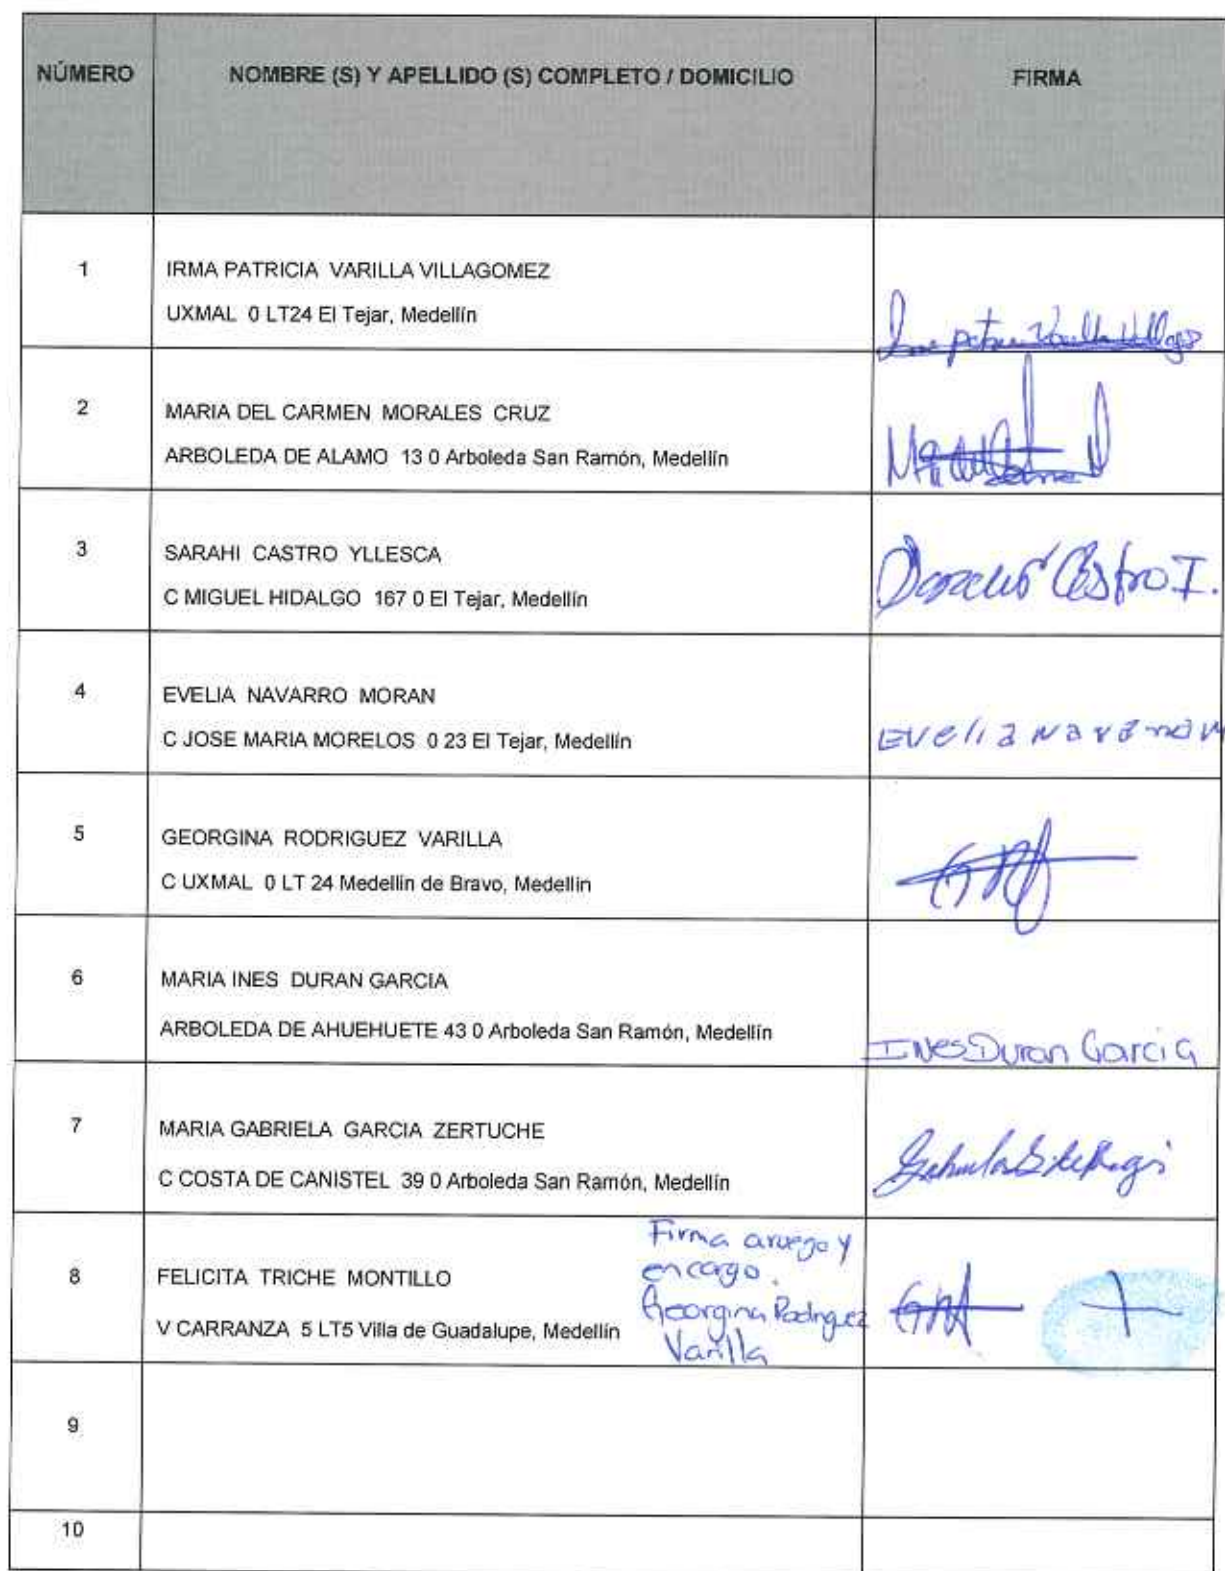 NÚMERO NOMBRE (S) Y APELLIDO (S) COMPLETO / DOMICILIO FIRMA
1 IRMA PATRICIA VARILLA VILLAGOMEZ
UXMAL 0 LT24 El Tejar, Medellín
2 MARIA DEL CARMEN MORALES CRUZ
ARBOLEDA DE ALAMO 13 0 Arboleda San Ramón, Medellín
3 SARAHI CASTRO YLLESCA
C MIGUEL HIDALGO 167 0 El Tejar, Medellín
Castro I.
4 EVELIA NAVARRO MORAN
C JOSE MARIA MORELOS 0 23 El Tejar, Medellín
Evelia
5 GEORGINA RODRIGUEZ VARILLA
C UXMAL 0 LT 24 Medellin de Bravo, Medellín
6 MARIA INES DURAN GARCIA
ARBOLEDA DE AHUEHUETE 43 0 Arboleda San Ramón, Medellín
Ines Duran Garcia
7 MARIA GABRIELA GARCIA ZERTUCHE
C COSTA DE CANISTEL 39 0 Arboleda San Ramón, Medellín
8 FELICITA TRICHE MONTILLO
V CARRANZA 5 LT5 Villa de Guadalupe, Medellín
Firma aruego y
encargo.
Georgina Rodriguez
Varilla
9
10